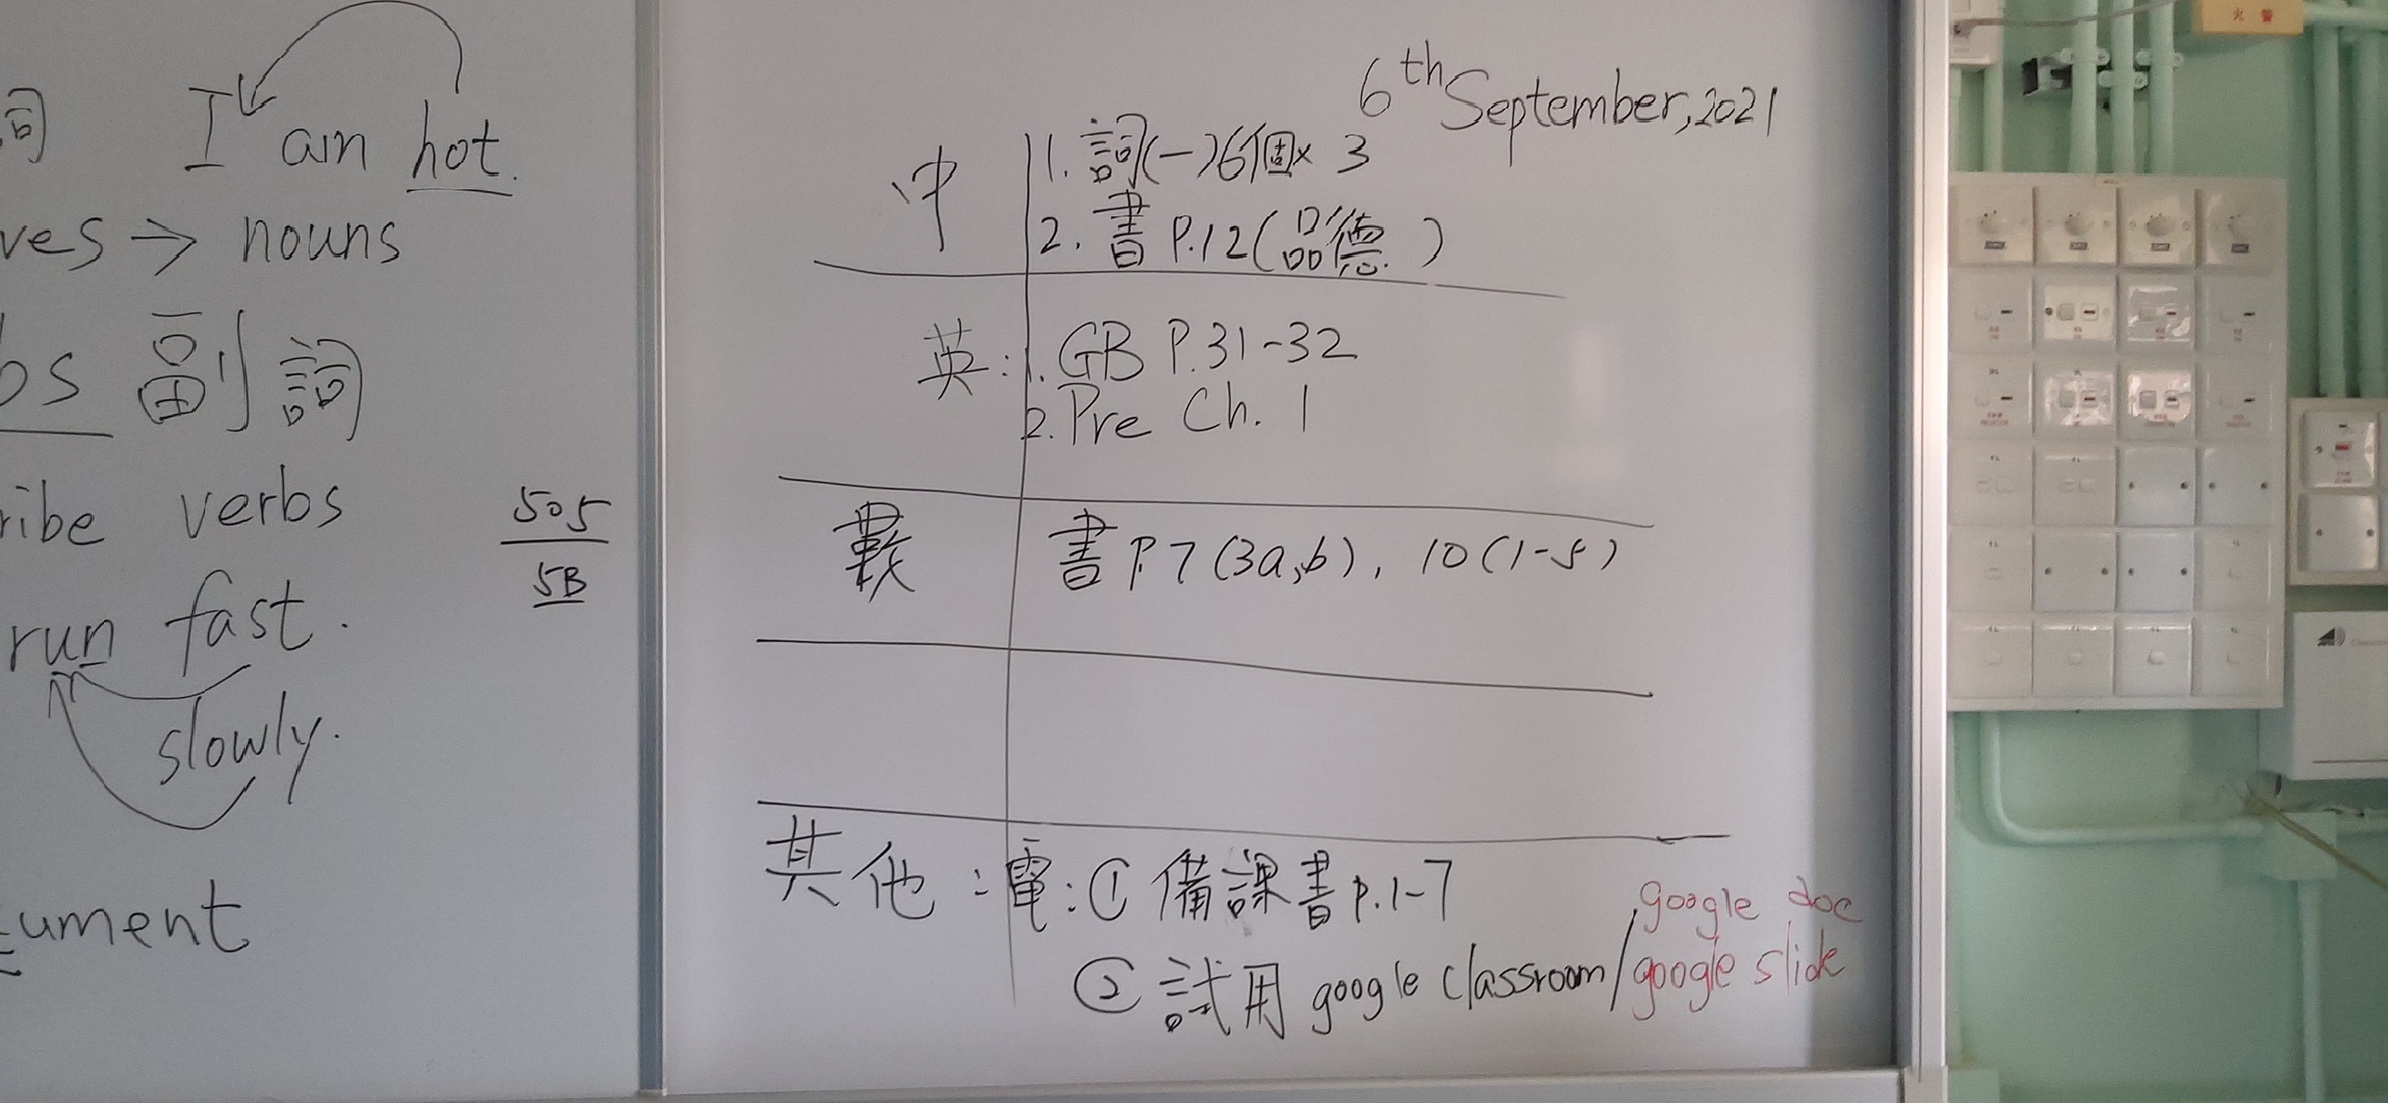 詞 I am hot.
ves → nouns
bs 副詞
ribe verbs
run fast.
slowly.
cument
505
5B
6th September, 2021
中 1. 詞(一)6個×3
2. 書 P.12(品德)
英: 1. GB P.31-32
2. Pre Ch. 1
數 書 P.7 (3a,b), 10 (1-5)
其他: 電: ① 備課書 p.1-7
② 試用 google classroom/google doc
google slide
火警